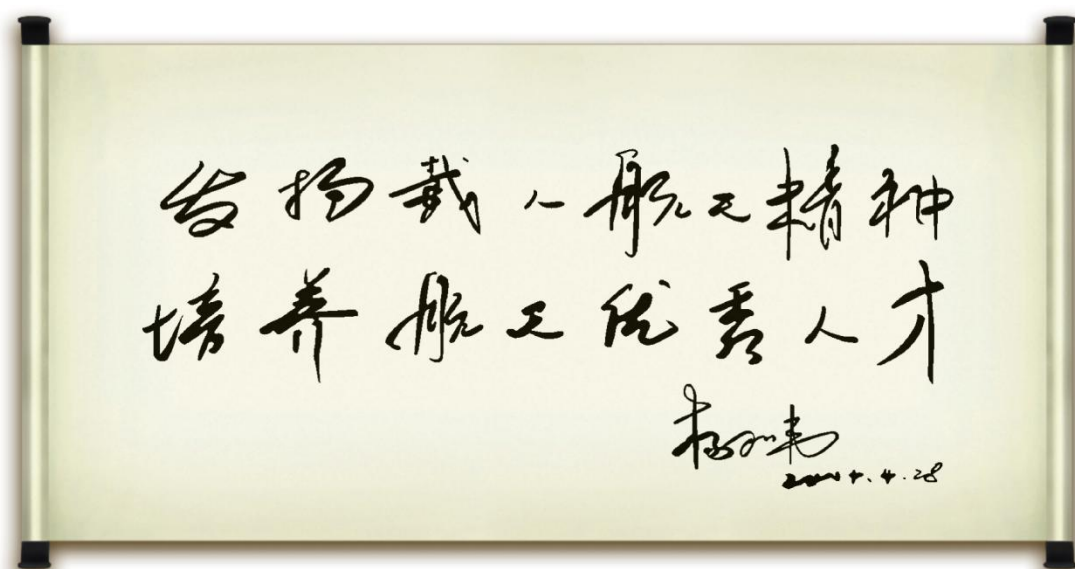 发扬载人航天精神
培养航天优秀人才
杨利伟
2004.4.28